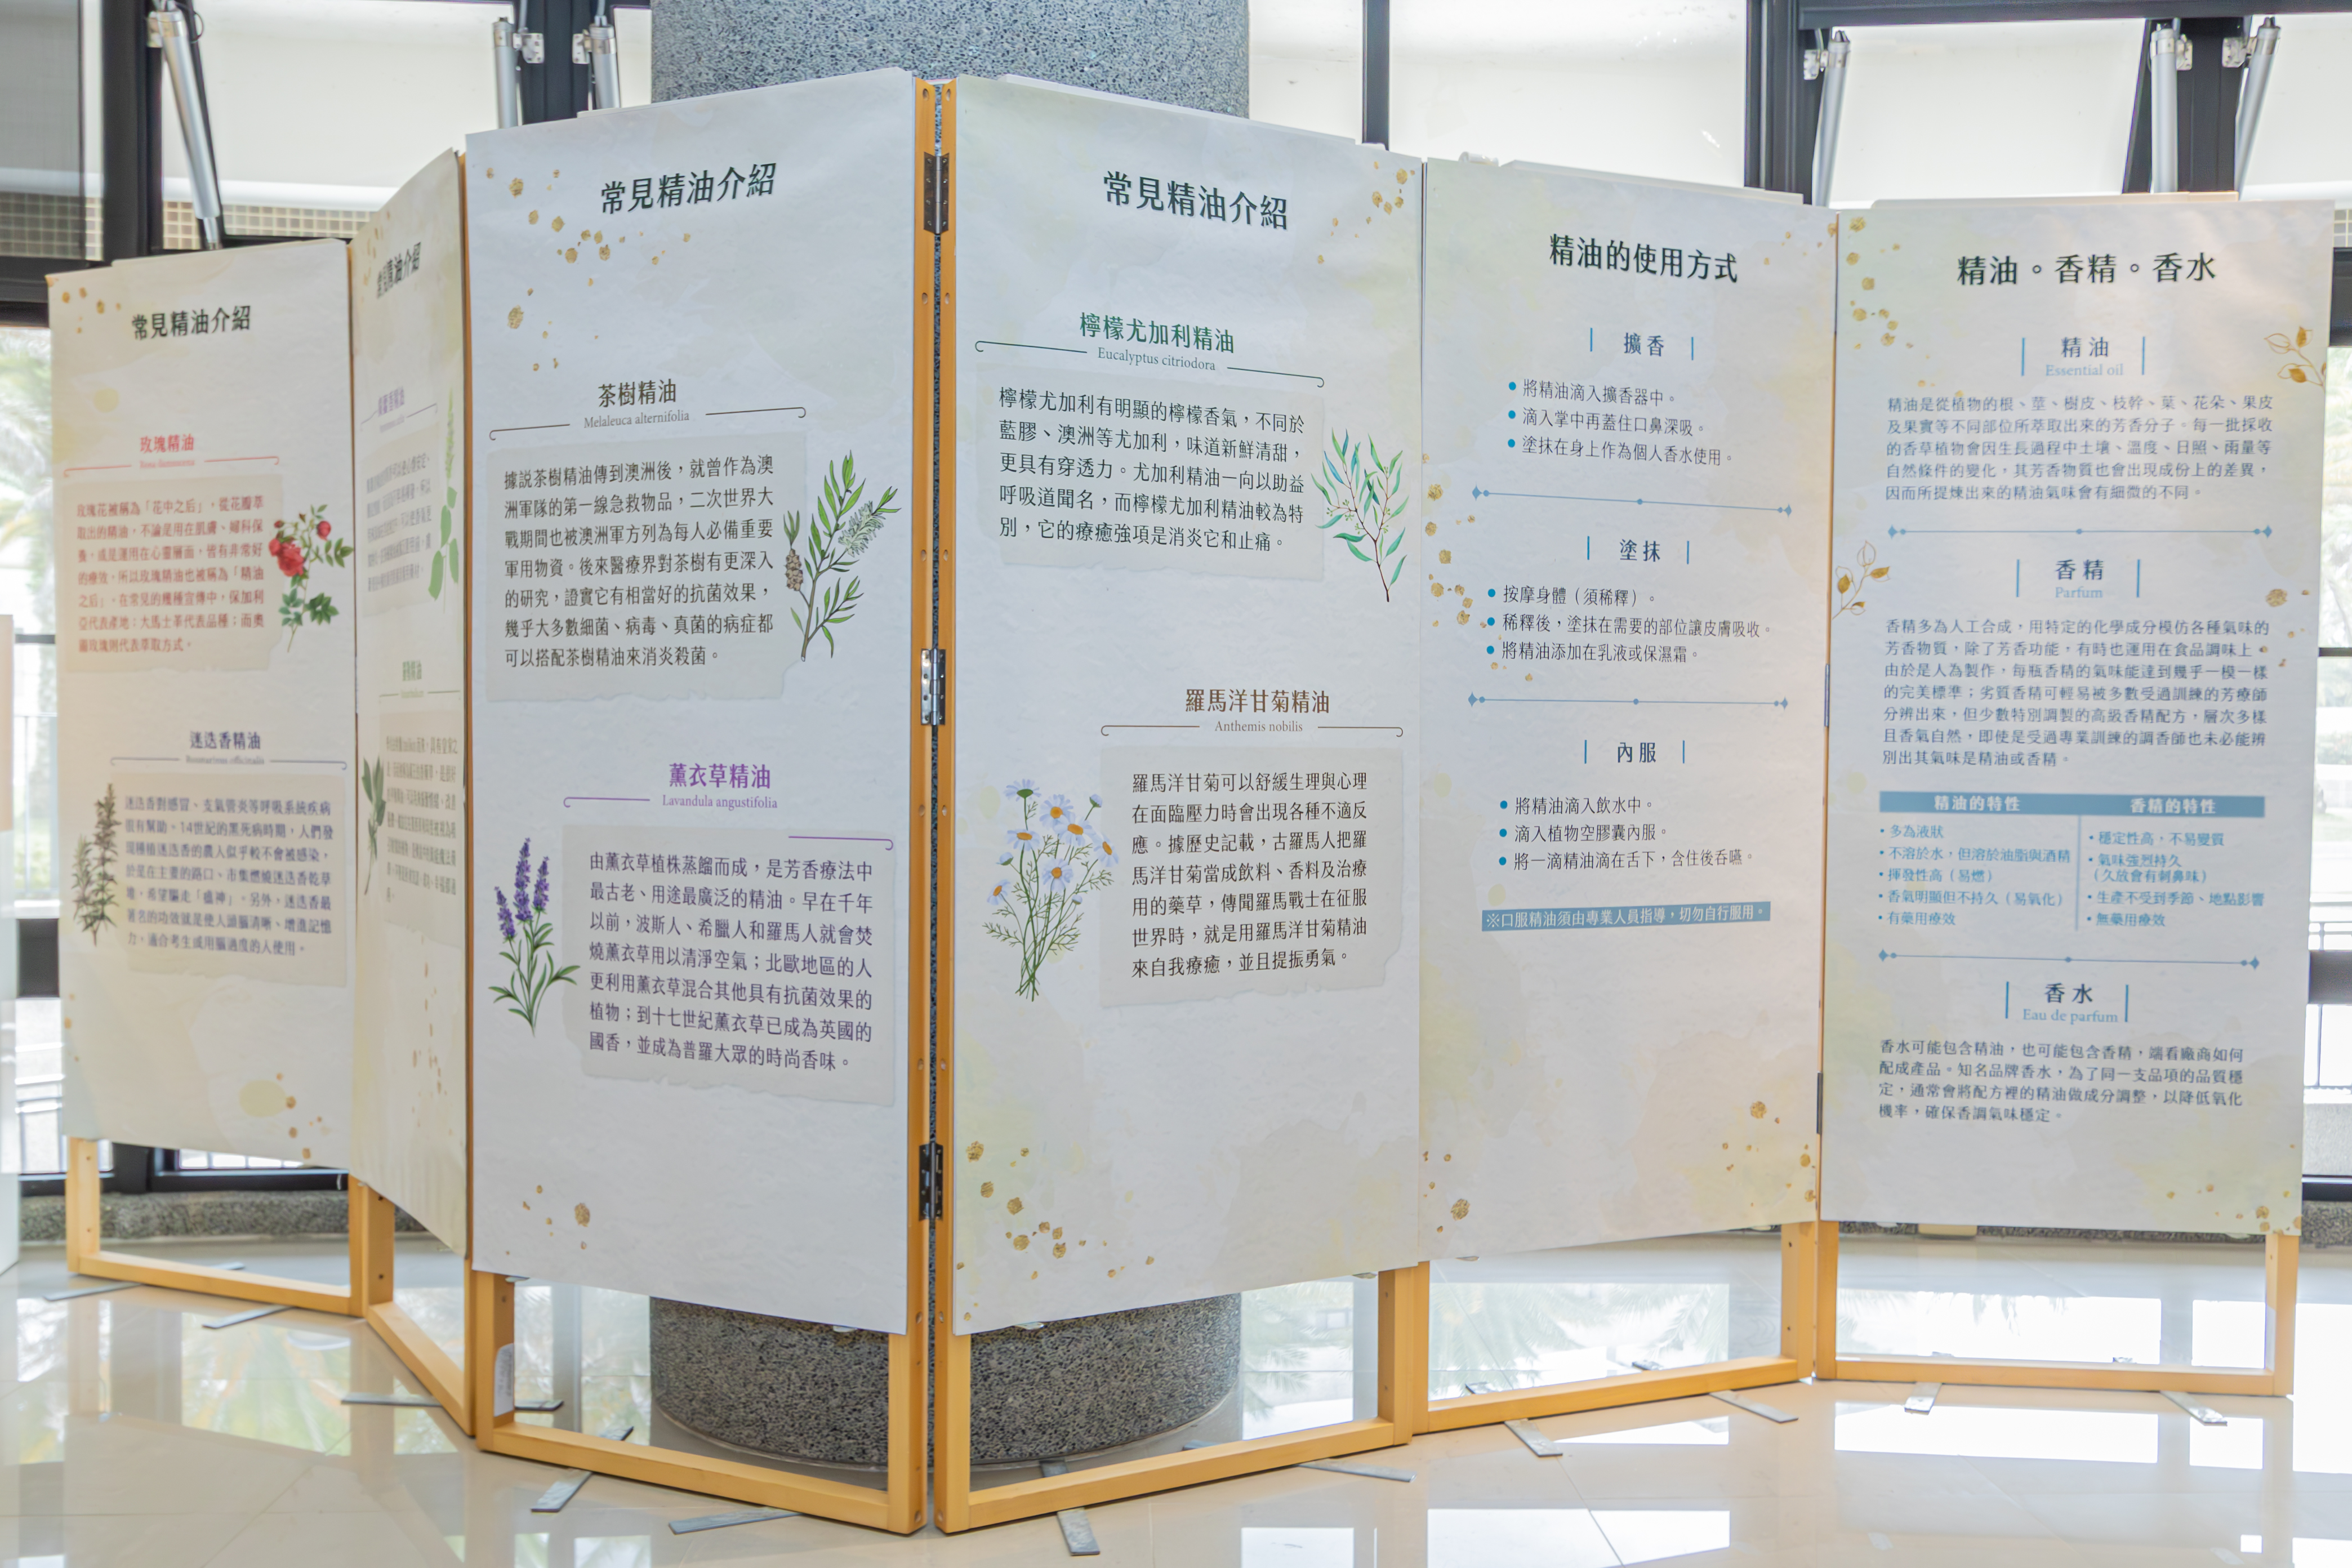 常見精油介紹
玫瑰精油
Rosa damascena
玫瑰花被稱為「花中之后」，從花瓣萃
取出的精油，不論是用在肌膚、婦科保
養，或是運用在心靈層面，皆有非常好
的療效，所以玫瑰精油也被稱為「精油
之后」。在常見的幾種宣傳中，保加利
亞代表產地；大馬士革代表品種；而奧
圖玫瑰則代表萃取方式。
迷迭香精油
Rosmarinus officinalis
迷迭香對感冒、支氣管炎等呼吸系統疾病
很有幫助、14世紀的黑死病時期，人們發
現種植迷迭香的農人似乎較不會被感染，
於是在主要的路口、市集燃燒迷迭香乾草
堆，希望驅走「瘟神」。另外，迷迭香最
著名的功效就是使人頭腦清晰、增進記憶
力，適合考生或用腦過度的人使用。
常見精油介紹
常見精油介紹
茶樹精油
Melaleuca alternifolia
據說茶樹精油傳到澳洲後，就曾作為澳
洲軍隊的第一線急救物品，二次世界大
戰期間也被澳洲軍方列為每人必備重要
軍用物資。後來醫療界對茶樹有更深入
的研究，證實它有相當好的抗菌效果，
幾乎大多數細菌、病毒、真菌的病症都
可以搭配茶樹精油來消炎殺菌。
薰衣草精油
Lavandula angustifolia
由薰衣草植株蒸餾而成，是芳香療法中
最古老、用途最廣泛的精油。早在千年
以前，波斯人、希臘人和羅馬人就會焚
燒薰衣草用以清淨空氣；北歐地區的人
更利用薰衣草混合其他具有抗菌效果的
植物；到十七世紀薰衣草已成為英國的
國香，並成為普羅大眾的時尚香味。
常見精油介紹
檸檬尤加利精油
Eucalyptus citriodora
檸檬尤加利有明顯的檸檬香氣，不同於
藍膠、澳洲等尤加利，味道新鮮清甜，
更具有穿透力。尤加利精油一向以助益
呼吸道聞名，而檸檬尤加利精油較為特
別，它的療癒強項是消炎它和止痛。
羅馬洋甘菊精油
Anthemis nobilis
羅馬洋甘菊可以舒緩生理與心理
在面臨壓力時會出現各種不適反
應。據歷史記載，古羅馬人把羅
馬洋甘菊當成飲料、香料及治療
用的藥草，傳聞羅馬戰士在征服
世界時，就是用羅馬洋甘菊精油
來自我療癒，並且提振勇氣。
精油的使用方式
擴香
• 將精油滴入擴香器中。
• 滴入掌中再蓋住口鼻深吸。
• 塗抹在身上作為個人香水使用。
塗抹
• 按摩身體（須稀釋）。
• 稀釋後，塗抹在需要的部位讓皮膚吸收。
• 將精油添加在乳液或保濕霜。
內服
• 將精油滴入飲水中。
• 滴入植物空膠囊內服。
• 將一滴精油滴在舌下，含住後吞嚥。
※口服精油須由專業人員指導，切勿自行服用。
精油。香精。香水
精油
Essential oil
精油是從植物的根、莖、樹皮、枝幹、葉、花朵、果皮
及果實等不同部位所萃取出來的芳香分子。每一批採收
的香草植物會因生長過程中土壤、溫度、日照、雨量等
自然條件的變化，其芳香物質也會出現成份上的差異，
因而所提煉出來的精油氣味會有細微的不同。
香精
Parfum
香精多為人工合成，用特定的化學成分模仿各種氣味的
芳香物質，除了芳香功能，有時也運用在食品調味上。
由於是人為製作，每瓶香精的氣味能達到幾乎一模一樣
的完美標準；劣質香精可輕易被多數受過訓練的芳療師
分辨出來，但少數特別調製的高級香精配方，層次多樣
且香氣自然，即使是受過專業訓練的調香師也未必能辨
別出其氣味是精油或香精。
精油的特性
• 多為液狀
• 不溶於水，但溶於油脂與酒精
• 揮發性高（易燃）
• 香氣明顯但不持久（易氧化）
• 有藥用療效
香精的特性
• 穩定性高，不易變質
• 氣味強烈持久
（久放會有刺鼻味）
• 生產不受到季節、地點影響
• 無藥用療效
香水
Eau de parfum
香水可能包含精油，也可能包含香精，端看廠商如何
配成產品。知名品牌香水，為了同一支品項的品質穩
定，通常會將配方裡的精油做成分調整，以降低氧化
機率，確保香調氣味穩定。